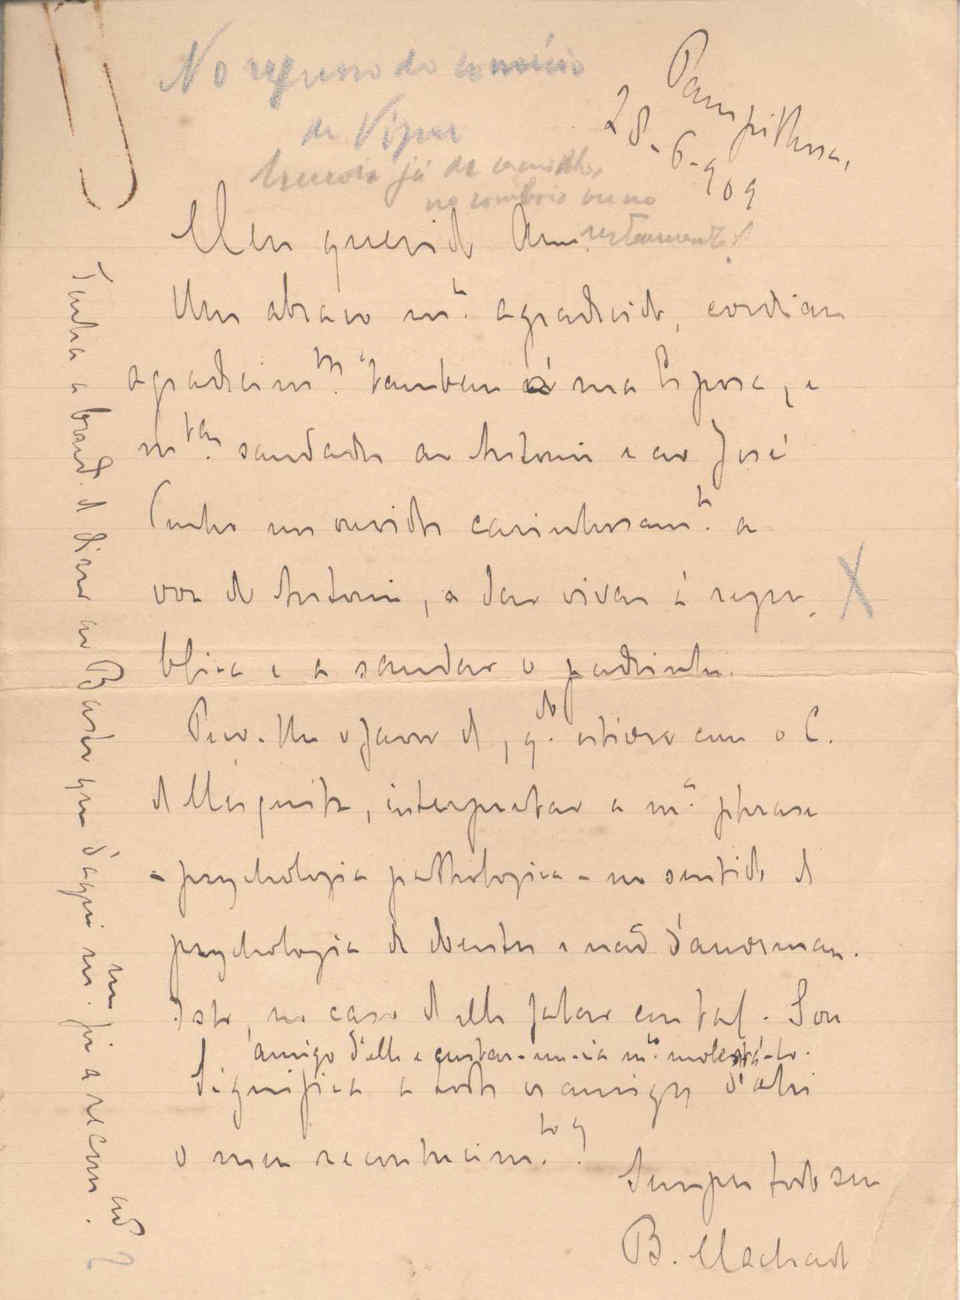 No regresso do comicio
de Vizeu
já de
no comboio ou no
Pampilhosa,
28-6-909
Meu querido Am.
Um abraço m.to agradecido, cordiaes
agradecim.tos tambem á sua Esposa, e
m.tas saudades ao Antonio e ao José
Tenho nos ouvidos carinhosam.te a
voz do Antonio, a dar vivas á repu-
blica e a saudar o padrinho.
Peço-lhe o favor de, q.do estiver com o C.
de Mesquita, interpretar a m.a phrase
- psychologia pathologica - no sentido de
psychologia de doentes e não d'anormaes.
Isto, no caso d'elle falar em tal. Sou
amigo d'elle e custar-me-ia m.to molestá-lo.
Significa a todos os amigos d'ahi
o meu reconhecim.to
Sempre todo seu
B. Machado
Tenha a bond. de dizer ao Basto que d'aqui